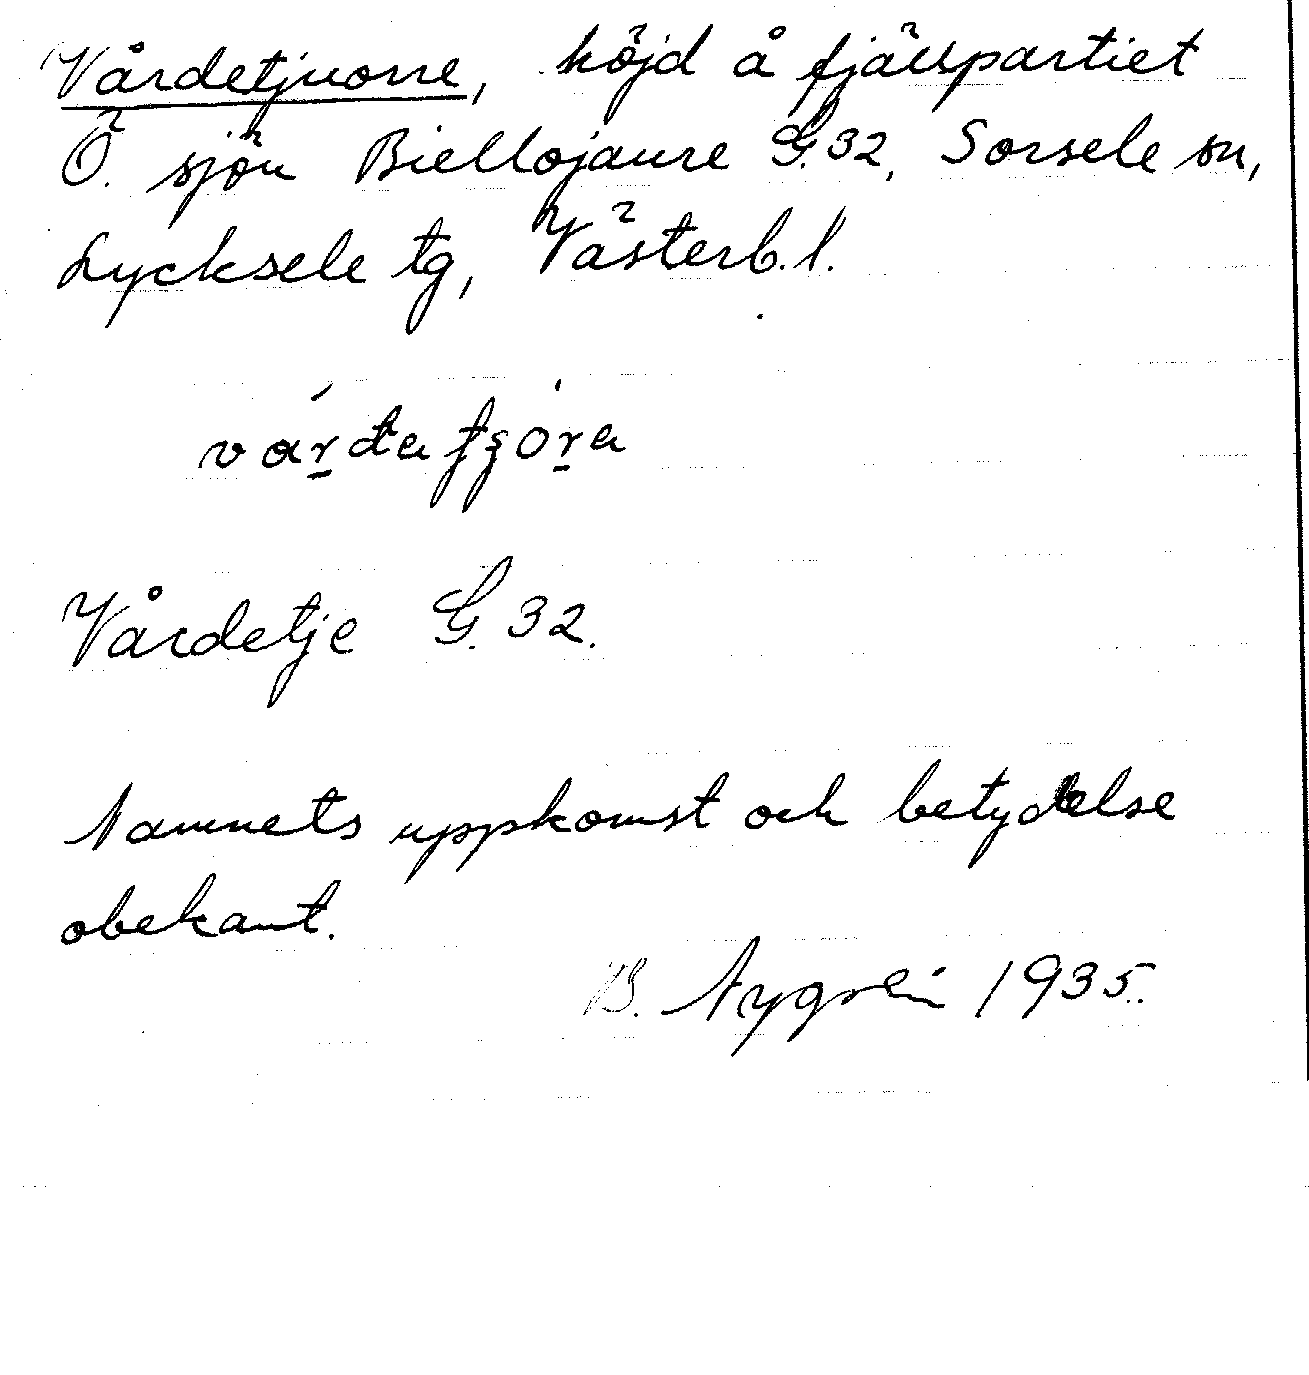 Vårdetjuorre, höjd å fjällpartiet
Ö. sjön Biellojaure G.32, Sorsele sn,
Lycksele tg, Västerb.l.
Vårdetje G.32.
Namnets uppkomst och betydelse
obekant.
B. Nygrén 1935.